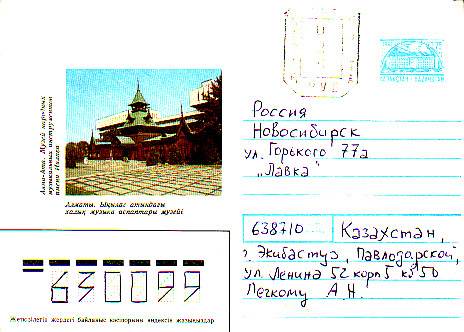 Алма-Ата. Музей народных
музыкальных инструментов
имени Ихласа
Алматы. Ықылас атындағы
халық музыка аспаптары музейі
Россия
Новосибирск
ул. Горького 77а
"Лавка"
638710
Казахстан,
г. Экибастуз, Павлодарской,
ул. Ленина 52 корп 5 кв 50
Легкому А.Н.
630099
Жөнелтілетін жердегі байланыс кәсіпорнының индексін жазыңыздар